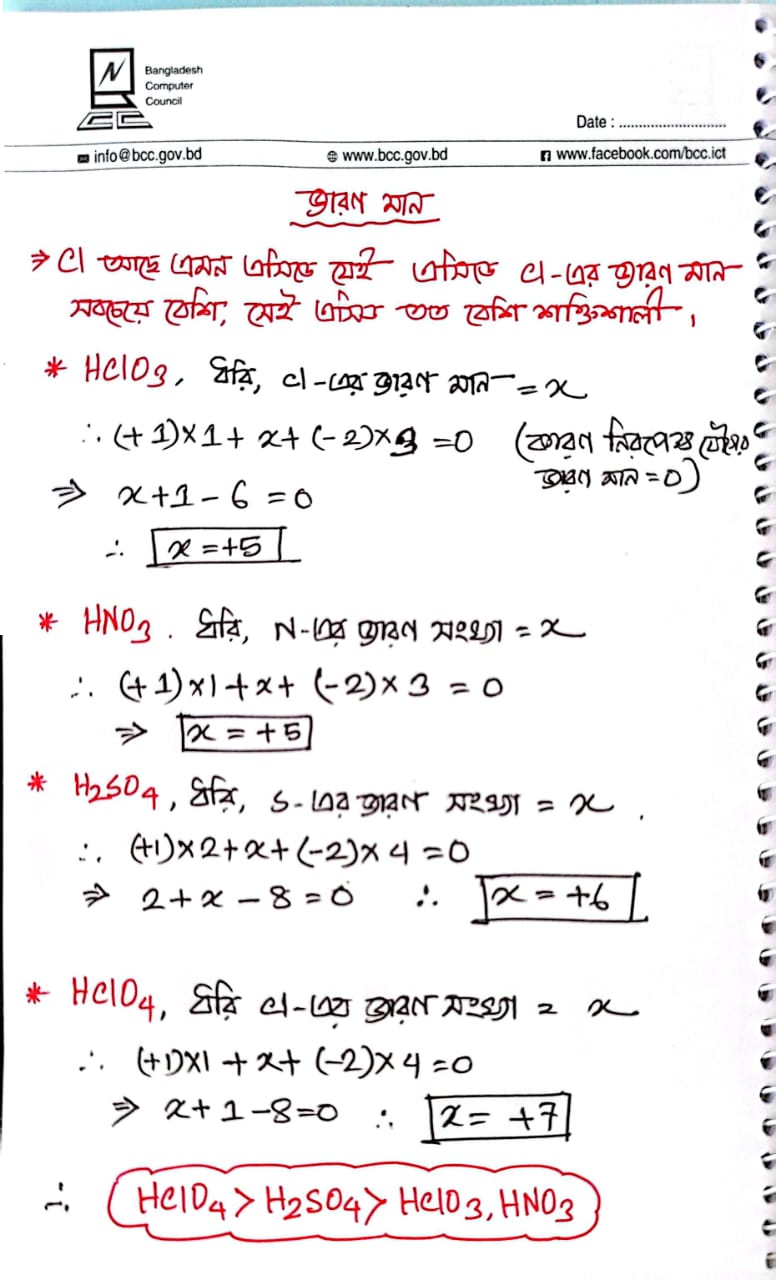 Bangladesh
Computer
Council
Date : ...........................
info@bcc.gov.bd www.bcc.gov.bd www.facebook.com/bcc.ict
জারণ মান
⇒ Cl আছে এমন এসিডে যেই এসিডে Cl-এর জারণ মান
সবচেয়ে বেশি, সেই এসিড তত বেশি শক্তিশালী।
* HClO₃, ধরি, Cl-এর জারণ মান = x
∴ (+1)×1 + x + (-2)×3 = 0 (কারণ নিরপেক্ষ যৌগের
জারণ মান = 0)
⇒ x+1-6 = 0
∴ x = +5
* HNO₃. ধরি, N-এর জারণ সংখ্যা = x
∴ (+1)×1+x+ (-2)×3 = 0
⇒ x = +5
* H₂SO₄, ধরি, S-এর জারণ সংখ্যা = x.
∴ (+1)×2+x+(-2)×4 = 0
⇒ 2+x-8 = 0 ∴ x = +6
* HClO₄, ধরি Cl-এর জারণ সংখ্যা = x
∴ (+1)×1 + x + (-2)×4 = 0
⇒ x+1-8=0 ∴ x = +7
∴ HClO₄ > H₂SO₄ > HClO₃, HNO₃